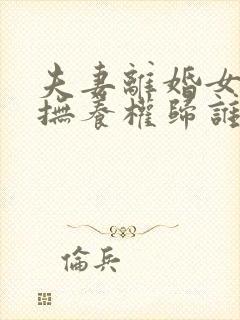 夫妻離婚女
撫養權歸誰
倫兵